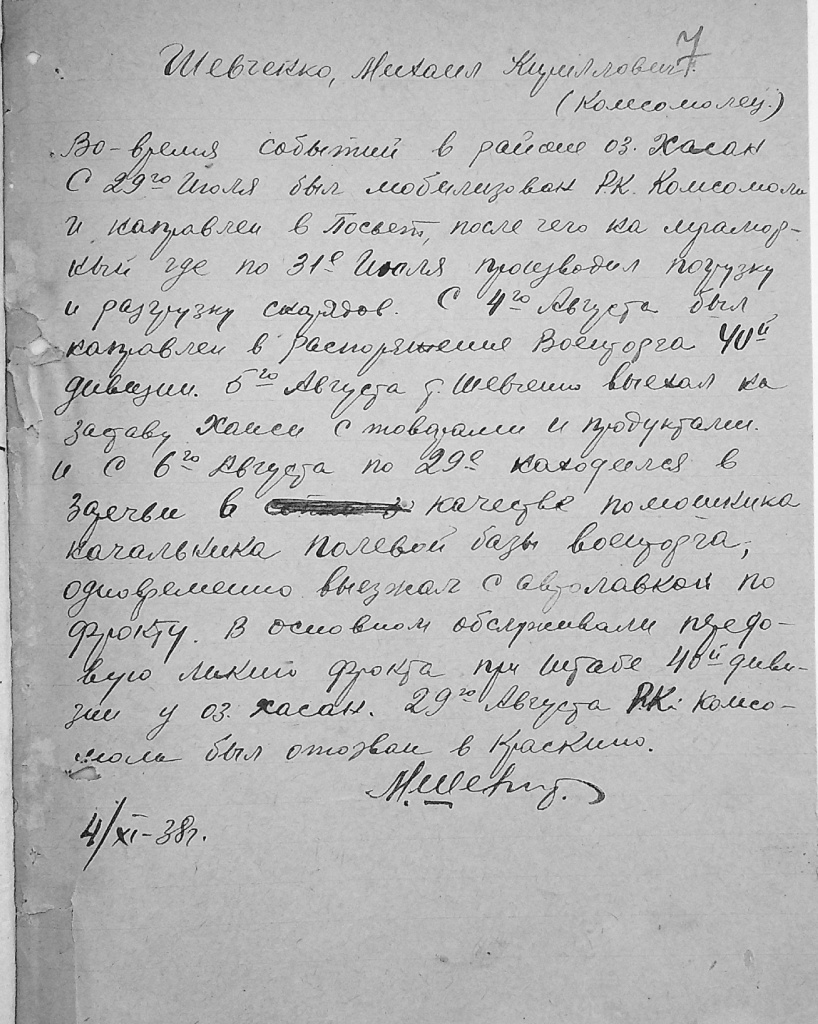 7
Шевченко, Михаил Кириллович.
(Комсомолец.)
Во-время событий в районе оз. Хасан
С 29го Июля был мобилизован РК. Комсомола
и направлен в Посьет, после чего на мрамор-
ный где по 31е Июля производил погрузку
и разгрузку снарядов. С 4го Августа был
направлен в распоряжение Военторга 40й
дивизии. 5го Августа т. Шевченко выехал на
заставу Ханси с товарами и продуктами.
и С 6го Августа по 29е находился в
Заречьи в качестве помошника
начальника полевой базы военторга,
одновременно выезжал с автолавкой по
фронту. В основном обслуживали передо-
вую линию фронта при штабе 40й диви-
зии у оз. хасан. 29го Августа РК. Комсо-
мола был отозван в Краскино.
4/XI-38г.